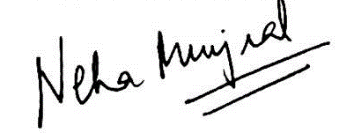 Neha Munjral